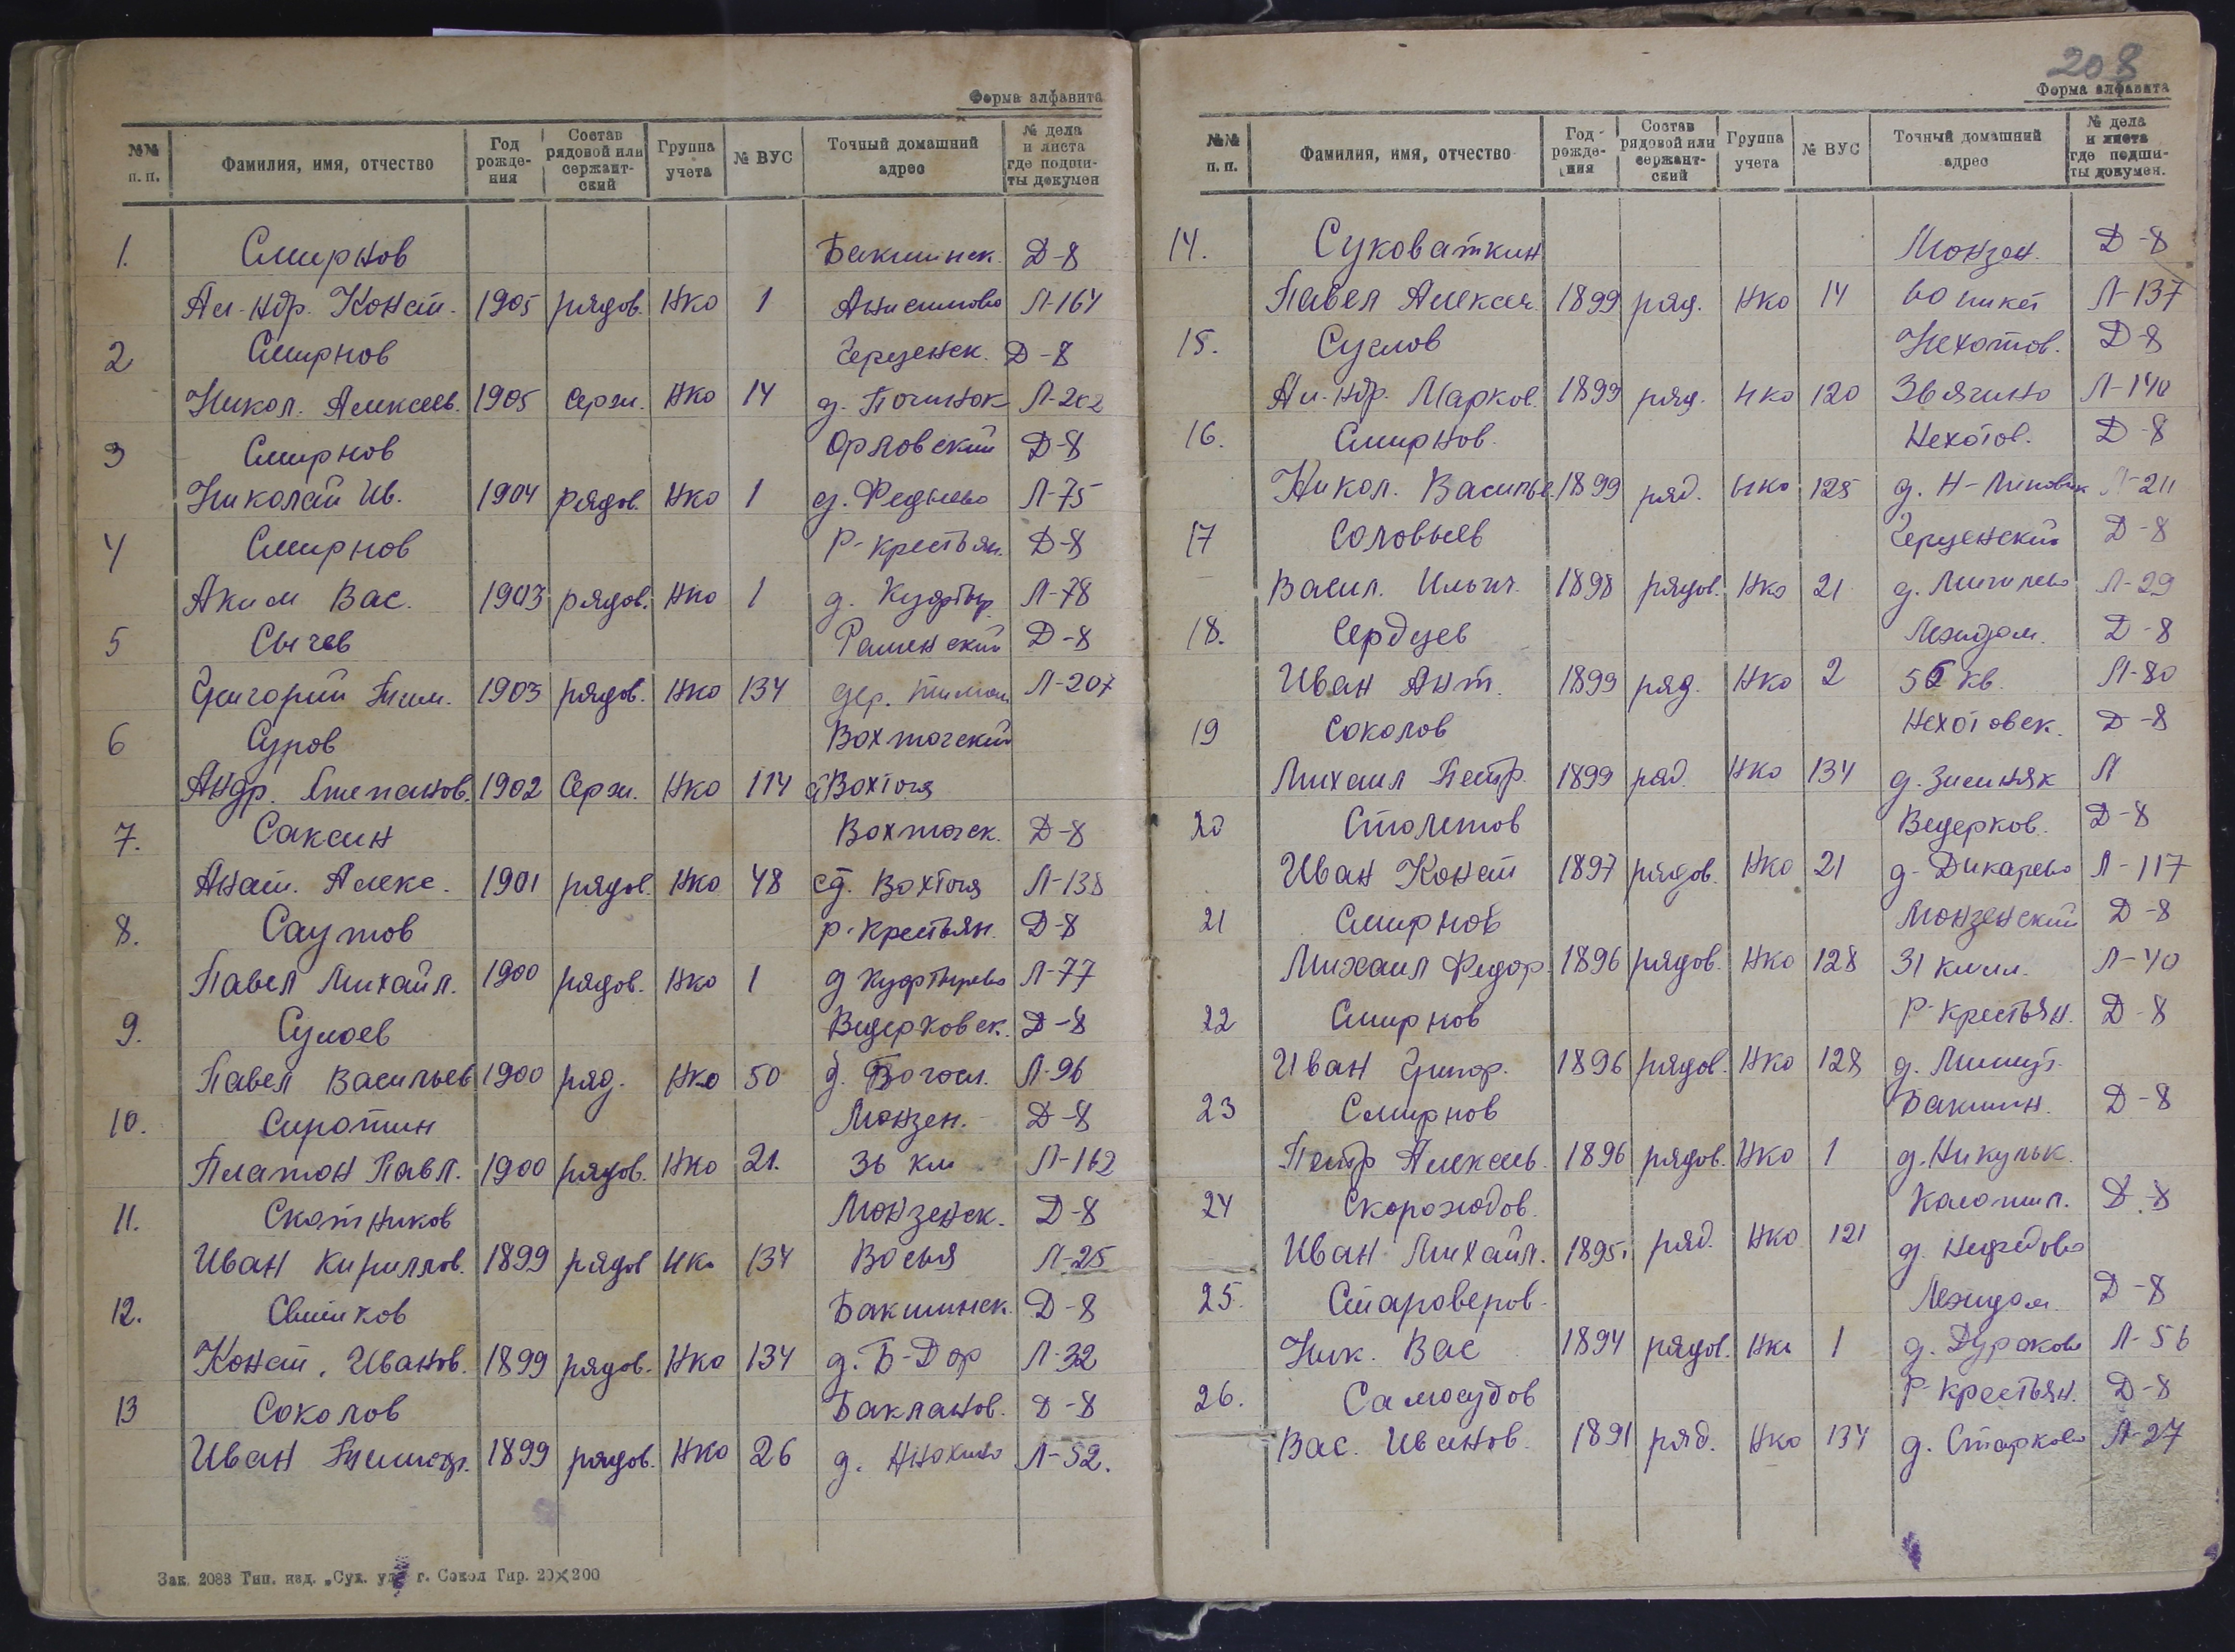 Форма алфавита
№№ п. п. Фамилия, имя, отчество Год рождения Состав рядовой или сержантский Группа учета № ВУС Точный домашний адрес № дела и листа где подшиты докумен
1. Смирнов Бакшинск. Д-8
Ал-ндр. Конст. 1905 рядов. НКО 1 Анисимово Л-164
2 Смирнов Герценск. Д-8
Никол. Алексеев. 1905 Серж. НКО 14 д. Починок Л-202
3 Смирнов Орловский Д-8
Николай Ив. 1904 рядов. НКО 1 д. Федяево Л-75
4 Смирнов Р-крестьян. Д-8
Аким Вас. 1903 рядов. НКО 1 д. Куфтыр. Л-78
5 Сычев Раменский Д-8
Григорий Тим. 1903 рядов. НКО 134 дер. Л-207
6 Суров Вохтожский
Андр. Степанов. 1902 Серж. НКО 114 Вохтога
7. Саксин Вохтожск. Д-8
Анат. Алекс. 1901 рядов. НКО 48 ст. Вохтога Л-138
8. Саутов р-крестьян. Д-8
Павел Михайл. 1900 рядов. НКО 1 д Куфтырево Л-77
9. Сулоев Ведерковск. Д-8
Павел Васильев 1900 ряд. НКО 50 д. Богосл. Л-96
10. Сиротин Монзен. Д-8
Платон Павл. 1900 рядов. НКО 21. 36 км Л-162
11. Скотников Монзенск. Д-8
Иван Кириллов. 1899 рядов НКо 134 Восья Л-25
12. Бакшинск. Д-8
Конст. Иванов. 1899 рядов. НКО 134 д. Б-Дор Л-32
13 Соколов Бакланов. Д-8
Иван 1899 рядов. НКО 26 д. Л-52.
Зак. 2083 Тип. изд. „Сух. г. Сокол Тир. 20×200
208
Форма алфавита
№№ п. п. Фамилия, имя, отчество Год рождения Состав рядовой или сержантский Группа учета № ВУС Точный домашний адрес № дела и листа где подшиты докумен.
14. Суковаткин Монзен. Д-8
Павел Алексеи 1899 ряд. НКО 14 60 пикет Л-137
15. Суслов Нехотов. Д-8
Ал-ндр. Марков. 1899 ряд. НКО 120 Звягино Л-140
16. Смирнов. Нехотов. Д-8
Никол. Василье. 1899 ряд. НКО 125 д. Н-Липовик Л-211
17 Соловьев Герценский Д-8
Васил. Ильич. 1898 рядов. НКО 21 д. Л-29
18. Сердцев Леждом. Д-8
Иван Ант. 1899 ряд. НКО 2 56 кв. Л-80
19 Соколов Нехотовск. Д-8
Михаил Петр. 1899 ряд. НКО 134 д. Зимняк Л
20 Столетов Ведерков. Д-8
Иван Конст 1897 рядов. НКО 21 д. Дикарево Л-117
21 Смирнов Монзенский Д-8
Михаил Федор. 1896 рядов. НКО 128 31 килм. Л-40
22 Смирнов Р-крестьян. Д-8
Иван Григор. 1896 рядов. НКО 128 д. Мишут.
23 Смирнов Бакшин. Д-8
Петр Алексеев. 1896 рядов. НКО 1 д. Никульк.
24 Скороходов. Д-8
Иван Михайл. 1895 ряд. НКО 121 д. Нефедово
25. Староверов. Леждом. Д-8
Ник. Вас 1894 рядов. НКО 1 д. Дураково Л-56
26. Самосудов Р-крестьян. Д-8
Вас. Иванов. 1891 ряд. НКО 134 д. Старково Л-27